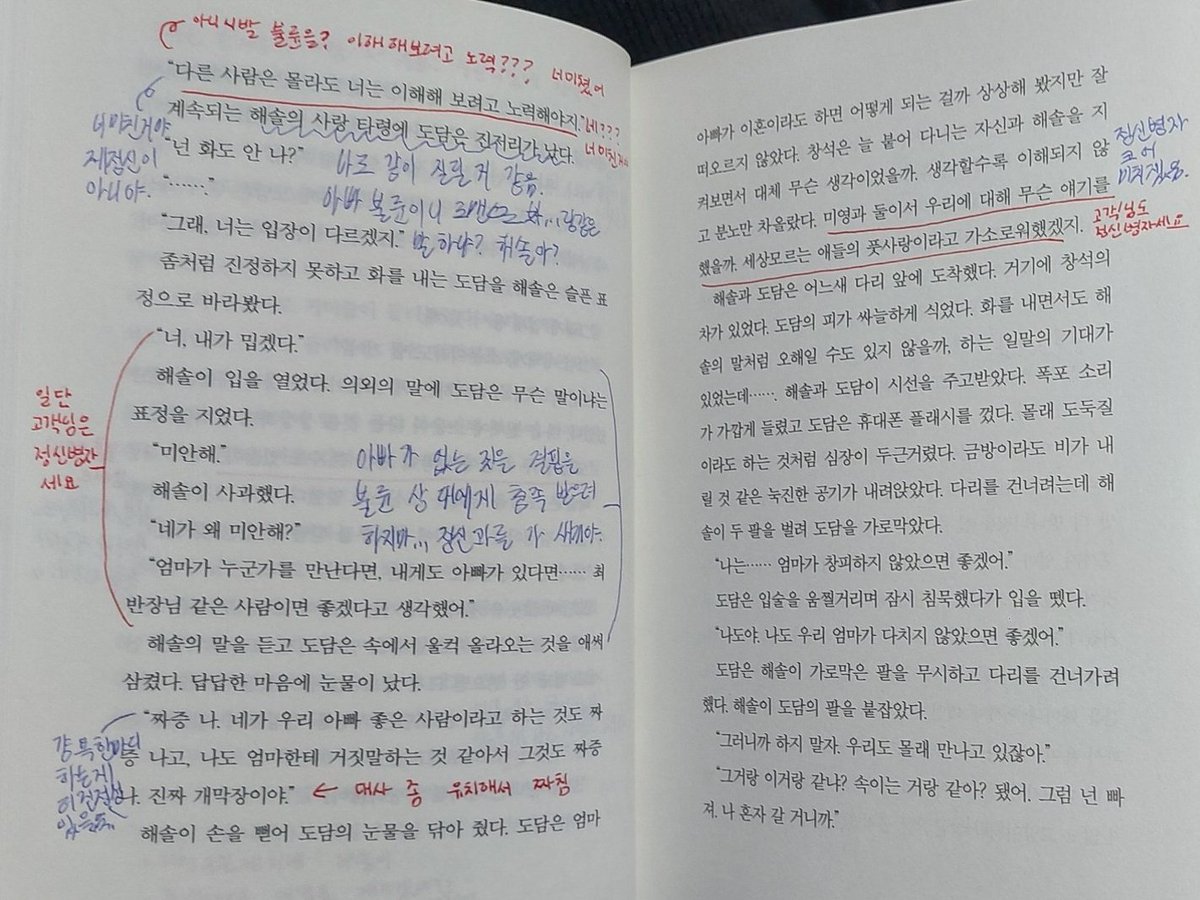 아니 시발 불륜을? 이해해보려고 노력??? 너 미쳤어
“다른 사람은 몰라도 너는 이해해 보려고 노력해야지.”
네???
너 미친거야
제정신이
아니야.
계속되는 해솔의 사랑 타령에 도담은 진저리가 났다.
“넌 화도 안 나?”
나도 같이 질릴 거 같음.
“……”
아빠 불륜이니
“그래, 너는 입장이 다르겠지.”
말 하냐? 해솔아?
좀처럼 진정하지 못하고 화를 내는 도담을 해솔은 슬픈 표
정으로 바라봤다.
“너, 내가 밉겠다.”
해솔이 입을 열었다. 의외의 말에 도담은 무슨 말이냐는
표정을 지었다.
일단
고객님은
정신병자
세요
“미안해.”
해솔이 사과했다.
“네가 왜 미안해?”
아빠가 없는 것은 결핍을
불륜 상대에게 충족 받으려
하지마... 정신과를 가 새끼야.
“엄마가 누군가를 만난다면, 내게도 아빠가 있다면…… 최
반장님 같은 사람이면 좋겠다고 생각했어.”
해솔의 말을 듣고 도담은 속에서 울컥 올라오는 것을 애써
삼켰다. 답답한 마음에 눈물이 났다.
“짜증 나. 네가 우리 아빠 좋은 사람이라고 하는 것도 짜
증 나고, 나도 엄마한테 거짓말하는 것 같아서 그것도 짜증
나. 진짜 개막장이야.”
← 대사 좀 유치해서 짜침
하는게
해솔이 손을 뻗어 도담의 눈물을 닦아 줬다. 도담은 엄마
아빠가 이혼이라도 하면 어떻게 되는 걸까 상상해 봤지만 잘
떠오르지 않았다. 창석은 늘 붙어 다니는 자신과 해솔을 지
켜보면서 대체 무슨 생각이었을까. 생각할수록 이해되지 않
고 분노만 차올랐다. 미영과 둘이서 우리에 대해 무슨 얘기를
했을까. 세상모르는 애들의 풋사랑이라고 가소로워했겠지.
정신병자
고객님도
정신병자세요
해솔과 도담은 어느새 다리 앞에 도착했다. 거기에 창석의
차가 있었다. 도담의 피가 싸늘하게 식었다. 화를 내면서도 해
솔의 말처럼 오해일 수도 있지 않을까, 하는 일말의 기대가
있었는데……. 해솔과 도담이 시선을 주고받았다. 폭포 소리
가 가깝게 들렸고 도담은 휴대폰 플래시를 껐다. 몰래 도둑질
이라도 하는 것처럼 심장이 두근거렸다. 금방이라도 비가 내
릴 것 같은 눅진한 공기가 내려앉았다. 다리를 건너려는데 해
솔이 두 팔을 벌려 도담을 가로막았다.
“나는…… 엄마가 창피하지 않았으면 좋겠어.”
도담은 입술을 움찔거리며 잠시 침묵했다가 입을 뗐다.
“나도야. 나도 우리 엄마가 다치지 않았으면 좋겠어.”
도담은 해솔이 가로막은 팔을 무시하고 다리를 건너가려
했다. 해솔이 도담의 팔을 붙잡았다.
“그러니까 하지 말자. 우리도 몰래 만나고 있잖아.”
“그거랑 이거랑 같냐? 속이는 거랑 같아? 됐어. 그럼 넌 빠
져. 나 혼자 갈 거니까.”